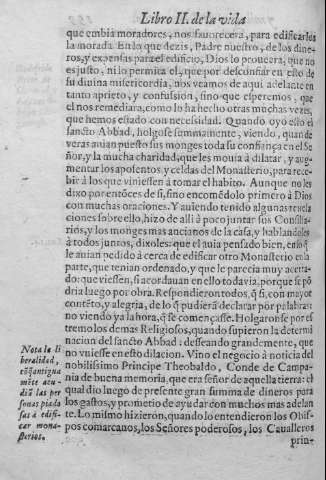 Libro II. de la vida
que embia moradores, nos fauorecera, para edificarles
la morada. En lo que dezis, Padre nuestro, de los dine-
ros, y expensas para el edificio, Dios lo proueera, que no
es justo, ni lo permita el, que por desconfiar en esto de
su diuina misericordia, nos veamos de aqui adelante en
tanto aprieto, y confusion, sino que esperemos, que
el nos remediara, como lo ha hecho otras muchas vezes,
que hemos estado con necesidad. Quando oyo esto el
sancto Abbad, holgose summamente, viendo, quan de
veras auian puesto sus monges toda su confiança en el Se
ñor, y la mucha charidad, que les mouia à dilatar, y aug-
mentar los aposentos, y celdas del Monasterio, para rece-
bir à los que viniessen à tomar el habito. Aunque no les
dixo por entõces de si, sino encomẽdolo primero à Dios
con muchas oraciones. Y auiendo tenido algunas reuela
ciones sobre ello, hizo de alli à poco juntar sus Consilia-
rios, y los monges mas ancianos de la casa, y hablandoles
à todos juntos, dixoles: que el auia pensado bien, en lo q̃
le auian pedido à cerca de edificar otro Monasterio en la
parte, que tenian ordenado, y que le parecia muy acerta-
do: que viessen, si acordauan en ello todavia, porque se põ
dria luego por obra. Respondieron todos, q̃ si, con mayor
contẽto, y alegria, de lo q̃ pudierã declarar por palabras:
no viendo ya la hora, q̃ se començasse. Holgaronse por es
tremo los demas Religiosos, quando supieron la determi
nacion del sancto Abbad: desseando grandemente, que
no vuiesse en esto dilacion. Vino el negocio à noticia del
nobilissimo Principe Theobaldo, Conde de Campa-
nia de buena memoria, que era señor de aquella tierra: el
qual dio luego de presente gran summa de dineros para
los gastos, y prometio de ayudar con muchos mas adelan
te. Lo mismo hizieron, quando lo entendieron los Obis-
pos comarcanos, los Señores poderosos, los Caualleros
prin-
Nota la li
beralidad,
cõ q̃ antigua
mẽte acu-
diã las per
sonas piado
sas à edifi-
car mona-
sterios.